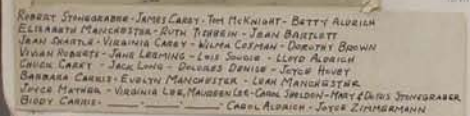 ROBERT STONEGRABER - JAMES CAREY - TOM MCKNIGHT - BETTY ALDRICH
ELIZABETH MANCHESTER - RUTH - JEAN BARTLETT
JEAN SHARTLE - VIRGINIA CAREY - WILMA COSMAN - DOROTHY BROWN
VIVIAN ROBERTS - JANE LEAMING - LOIS - LLOYD ALDRICH
CHUCK CAREY - JACK LONG - DOLORES DENISE - JOYCE HOVEY
BARBARA CARRIS - EVELYN MANCHESTER - LEAH MANCHESTER
JOYCE MATHER - VIRGINIA LEE, MAUREEN LEE - CAROL SHELDON - MARY & DORIS STONEGRABER
BIDDY CARRIS - CAROL ALDRICH - JOYCE ZIMMERMANN